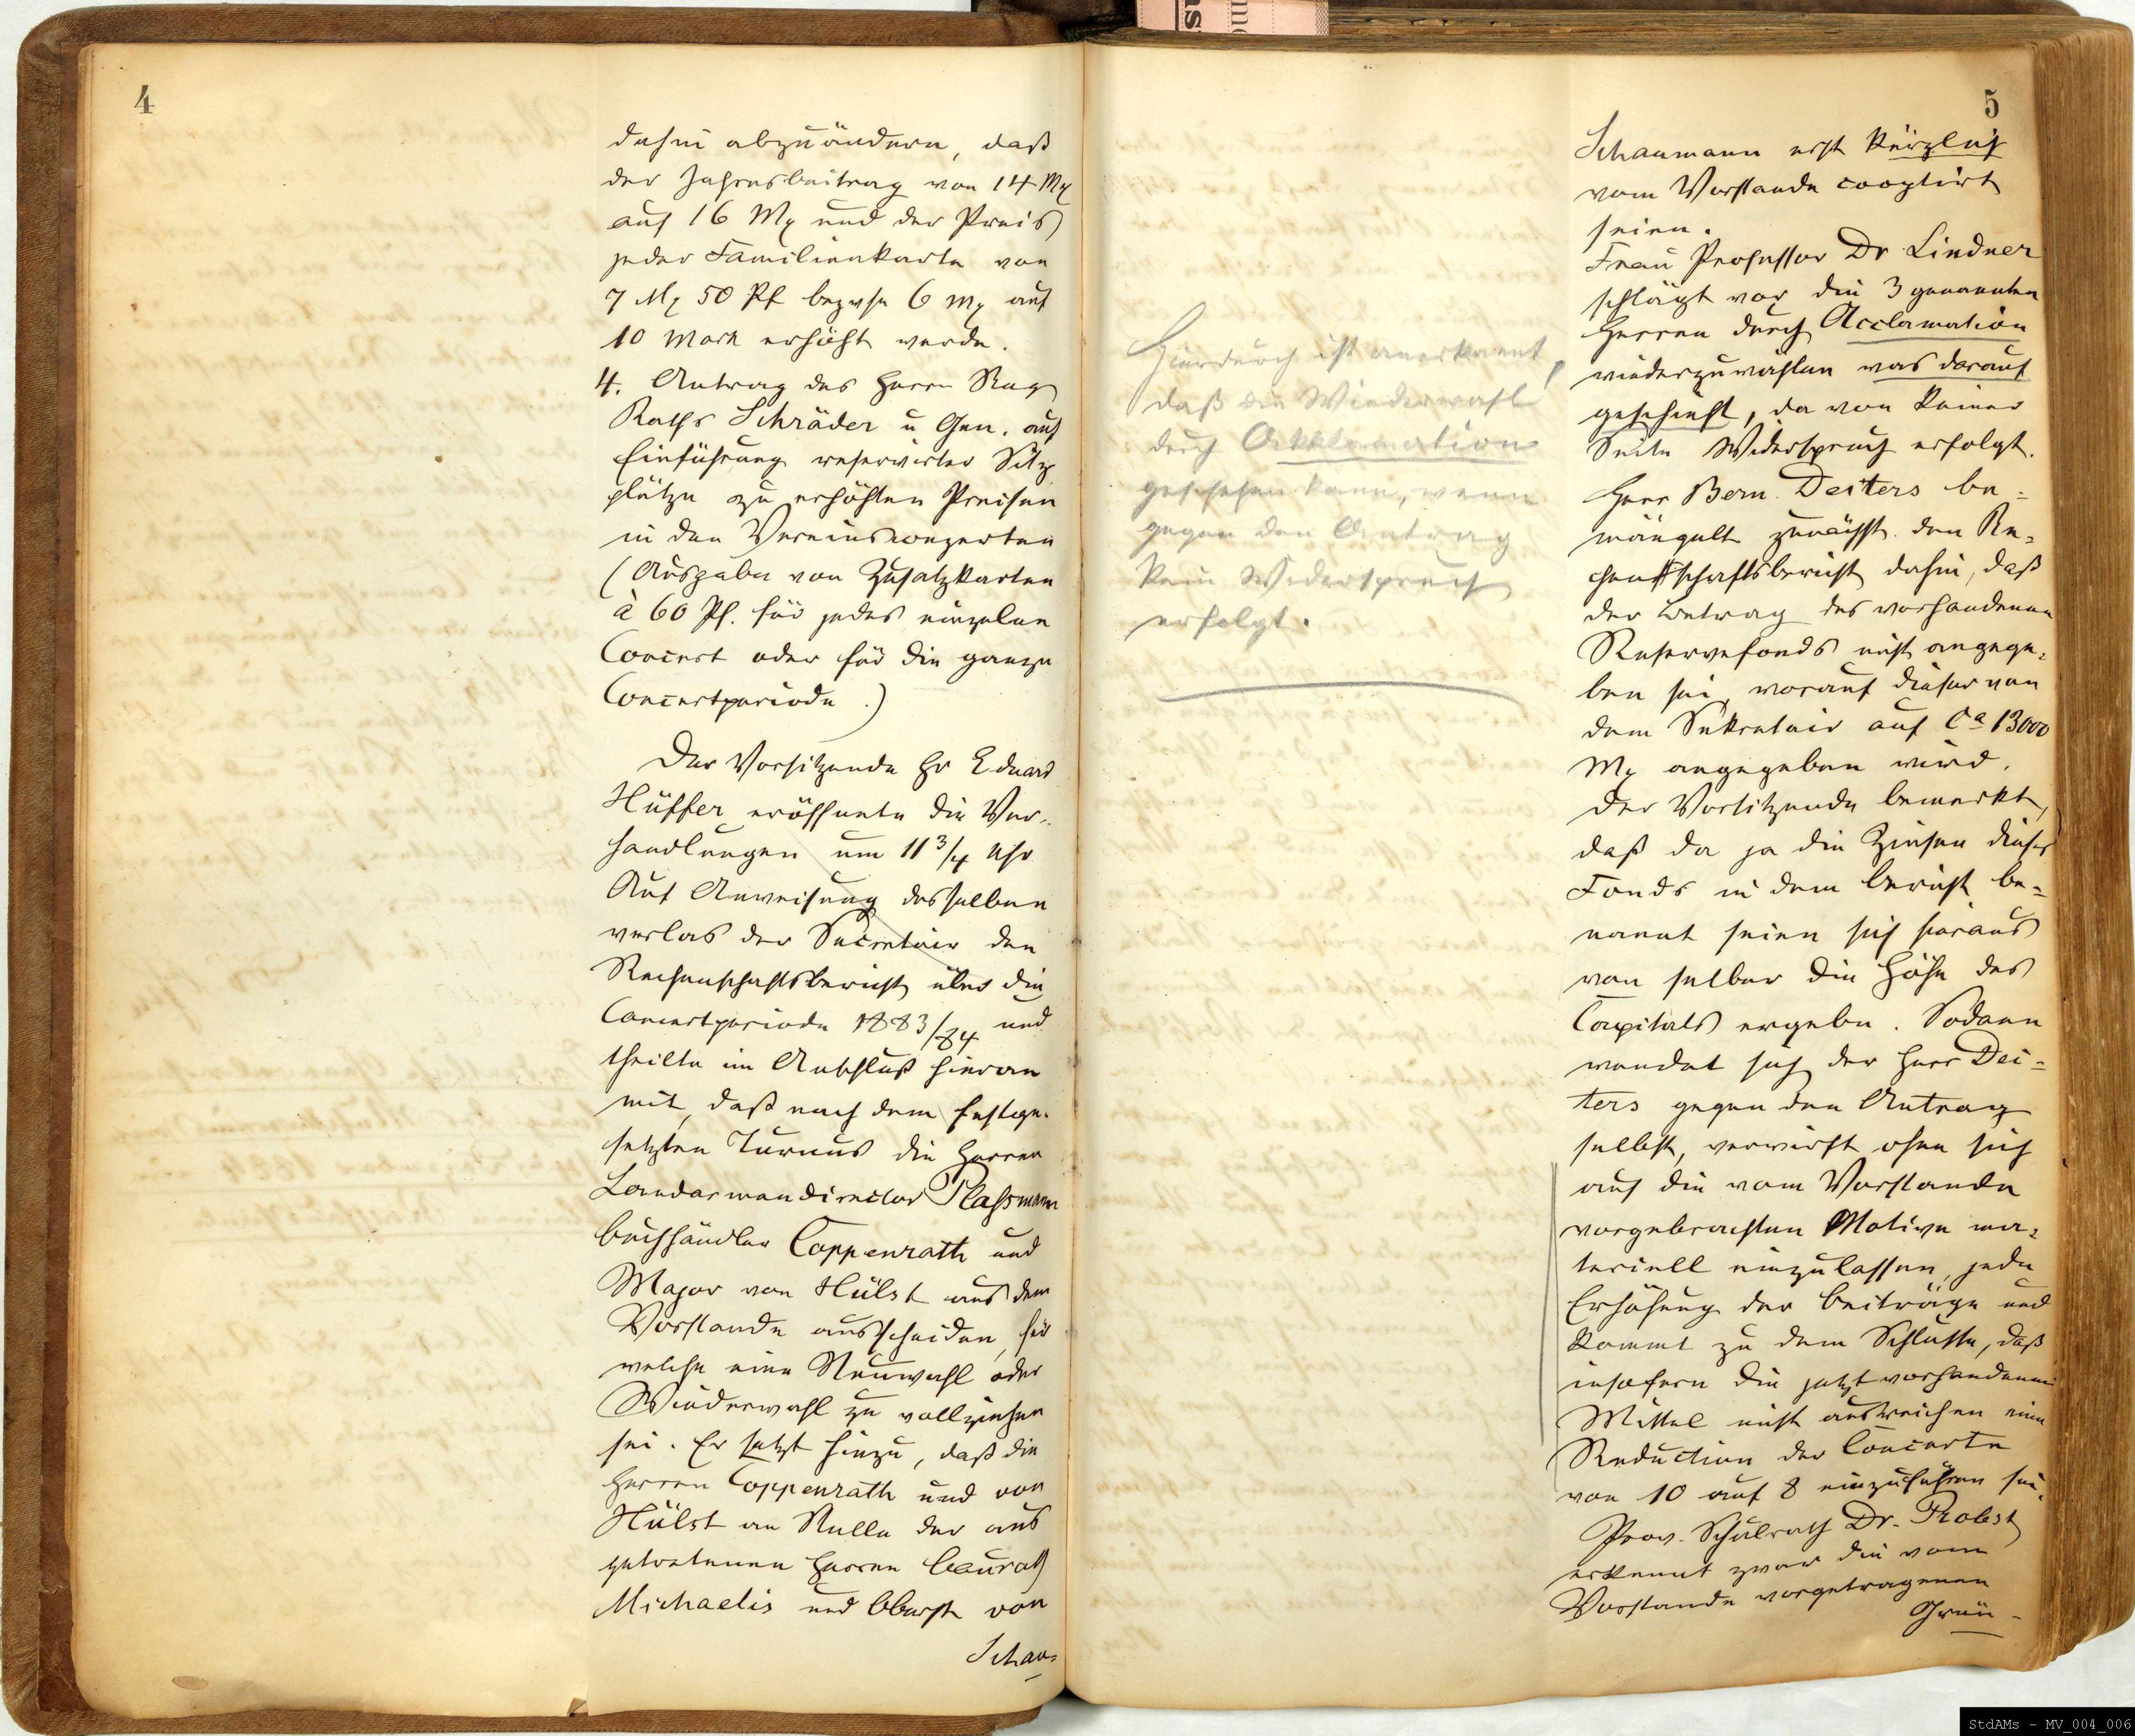 4
dahin abzuändern, daß
der Jahresbeitrag von 14 Mk
auf 16 Mk und der Preis
jeder Familienkarte von
7 Mk 50 Pf bezwse 6 Mk auf
10 Mark erhöht werde.
4. Antrag des Herrn Reg
Raths Schräder u Gen. auf
Einführung reservirter Sitz
plätze zu erhöhten Preisen
in den Vereinsconzerten
(Ausgabe von Zusatzkarten
à 60 Pf. für jedes einzelne
Concert oder für die ganze
Concertperiode.)
Der Vorsitzende Hr Eduard
Hüffer eröffnete die Ver-
handlungen um 11 3/4 Uhr
Auf Anweisung desselben
verlas der Secretair den
Rechenschaftsbericht über die
Concertperiode 1883/84 und
theilte im Anschluß hieran
mit, daß nach dem festge-
setzten Turnus die Herren
Landarmendirector Plaßmann
Buchhändler Coppenrath und
Major von Hülst aus dem
Vorstande ausscheiden, für
welche eine Neuwahl oder
Wiederwahl zu vollziehen
sei. Er setzt hinzu, daß die
Herren Coppenrath und von
Hülst an Stelle der aus
getretenen Herren Baurath
Michaelis und Oberst von
Schau-
Hierdurch ist anerkannt,
daß die Wiederwahl
durch Akklamation
geschehen kann, wenn
gegen den Antrag
kein Widerspruch
erfolgt.
5
Schaumann erst kürzlich
vom Vorstande cooptirt
seien.
Frau Professor Dr Lindner
schlägt vor die 3 genannten
Herren durch Acclamation
wiederzuwählen was darauf
geschieht, da von keiner
Seite Widerspruch erfolgt.
Herr Bern. Deiters be-
mängelt zunächst den Re-
chenschaftsbericht dahin, daß
der Betrag des vorhandenen
Reservefonds nicht angege-
ben sei, worauf dieser von
dem Sekretair auf Ca 13000
Mk angegeben wird.
Der Vorsitzende bemerkt,
daß da ja die Zinsen dieses
Fonds in dem Bericht be-
nannt seien sich hieraus
von selber die Höhe des
Capitals ergebe. Sodann
wendet sich der Herr Dei-
ters gegen den Antrag
selbst, verwirft ohne sich
auf die vom Vorstande
vorgebrachten Motive ma-
teriell einzulassen, jede
Erhöhung der Beiträge und
kommt zu dem Schlusse, daß
insofern die jetzt vorhandenen
Mittel nicht ausreichen eine
Reduction der Concerte
von 10 auf 8 einzuführen sei.
Prov. Schulrath Dr. Probst
erkennt zwar die vom
Vorstande vorgetragenen
Grün-
StdAMs - MV_004_006